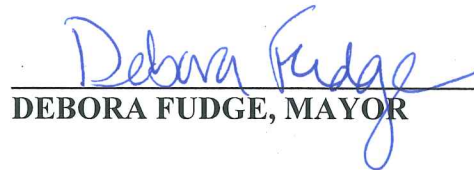 Debora Fudge
DEBORA FUDGE, MAYOR